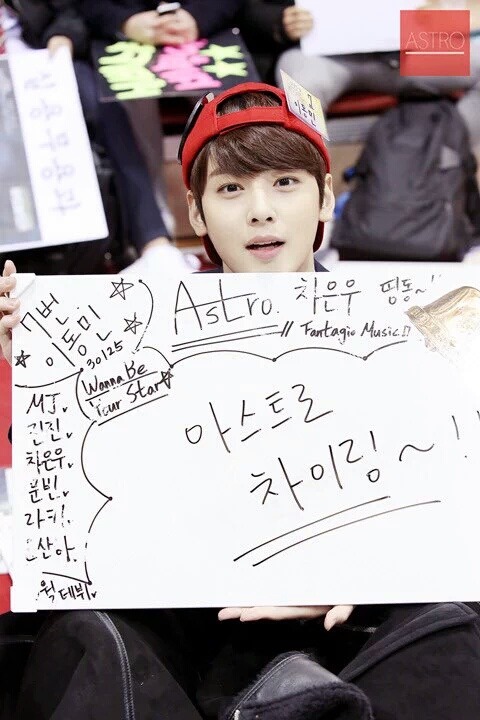 ASTRO
7번
이동민
30125
Astro. 차은우 핑동~!!
// Fantagio Music
Wanna Be
Your Star
MJ
진진
차은우
문빈
라키
산아
데뷔
아스트로
차이링~!!